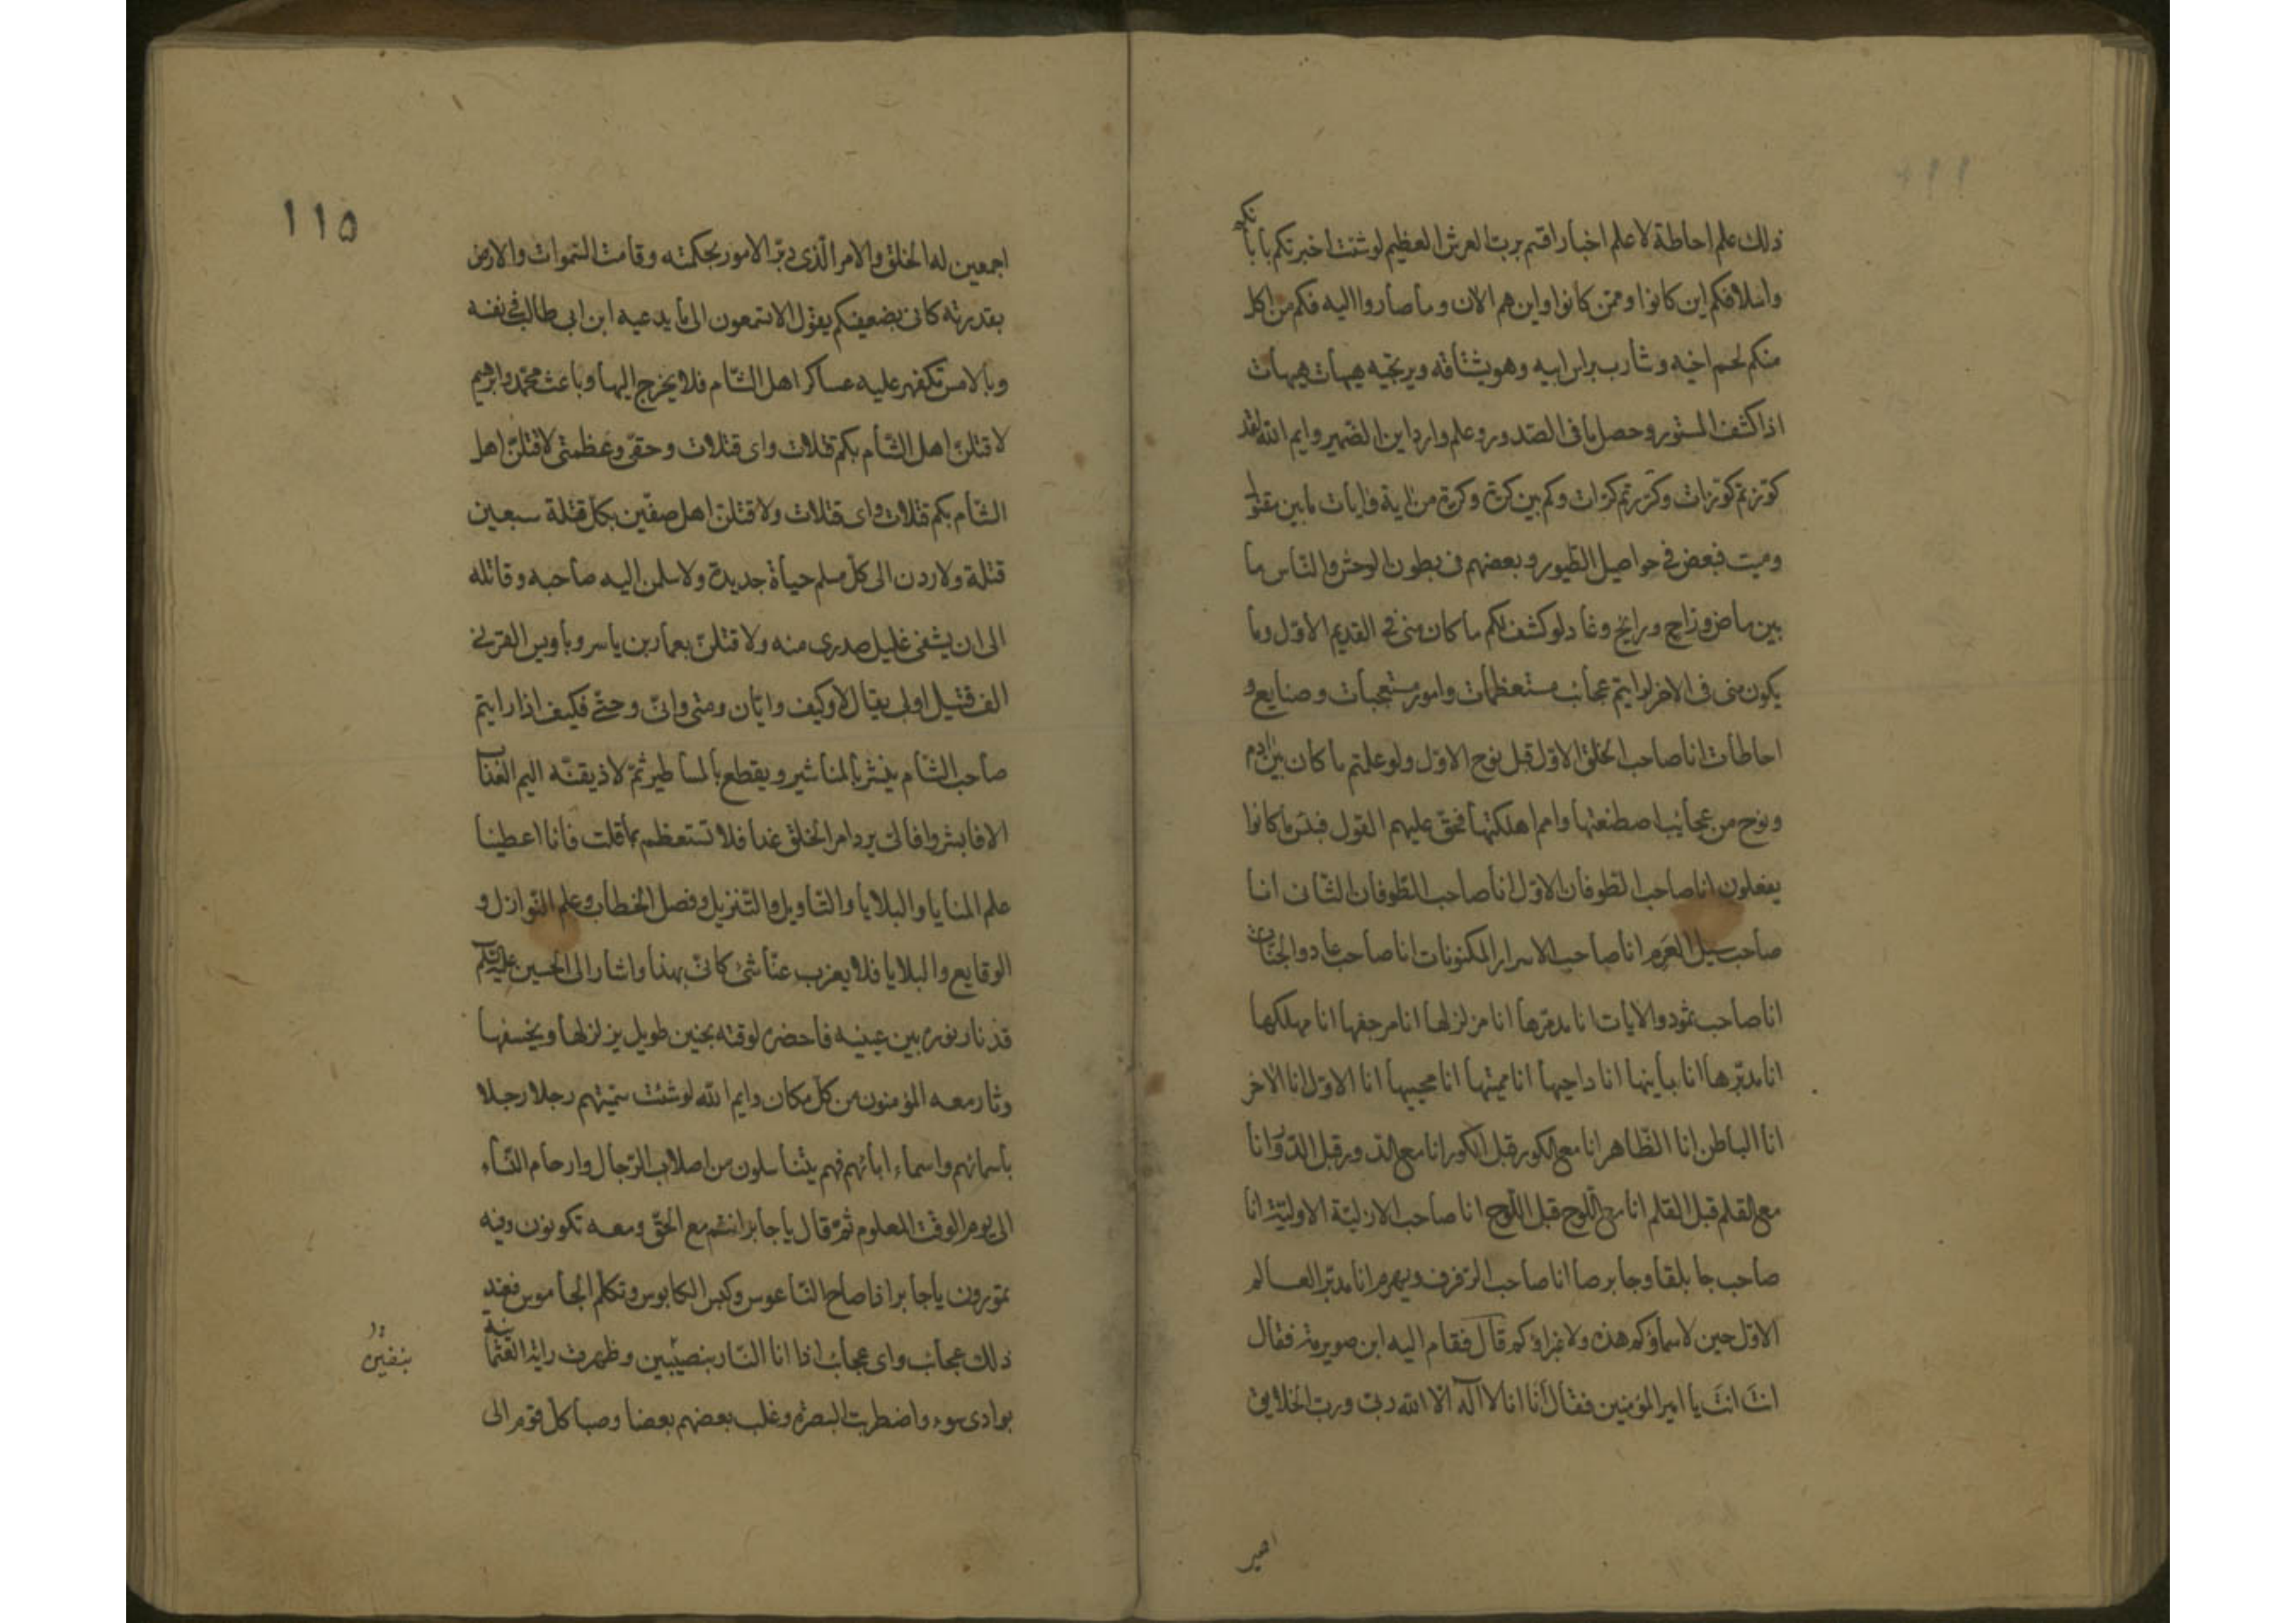 ذلك علم احاطة لا علم اخبار اقسم برب العرش العظيم لو شئت اخبرتكم بابائكم
واسلافكم اين كانوا وممن كانوا واين هم الان وما صاروا اليه فكم من اكل
منكم لحم اخيه وشارب براس ابيه وهو يشتاقه ويرتجيه هيهات هيهات
اذا كشف المستور وحصل ما فى الصدور وعلم وارد اين الضمير وايم الله لقد
كوّرتم كورات وكررتم كرات وكم بين كرة وكرة من اية وايات ما بين مقتول
وميت فبعض في حواصل الطيور وبعضهم فى بطون الوحش والناس ما
بين ماض وزاج ورايح وغاد لو كشف لكم ما كان منى في القديم الاول وما
يكون منى فى الاخر لرايتم عجائب مستعظمات وامور مستعجبات وصنايع و
احاطات انا صاحب الخلق الاول قبل نوح الاول ولو علمتم ما كان بين ادم
ونوح من عجائب اصطنعتها وامم اهلكتها فحق عليهم القول فبئس ما كانوا
يفعلون انا صاحب الطوفان الاول انا صاحب الطوفان الثانى انا
صاحب سيل العرم انا صاحب الاسرار المكنونات انا صاحب عاد والجنات
انا صاحب ثمود والايات انا مدمرها انا مزلزلها انا مرجفها انا مهلكها
انا مدبرها انا بانيها انا داحيها انا مميتها انا محييها انا الاول انا الاخر
انا الباطن انا الظاهر انا مع الكور قبل الكور انا مع الدور قبل الدور انا
مع القلم قبل القلم انا مع اللوح قبل اللوح انا صاحب الازلية الاولية انا
صاحب جابلقا وجابرصا انا صاحب الرفرف وبهرم انا مدبر العالم
الاول حين لا سماؤكم هذه ولا غبراؤكم قال فقام اليه ابن صويرمة فقال
انت انت يا امير المؤمنين فقال انا انا لا اله الا الله ربى ورب الخلايق
١١٥
اجمعين له الخلق والامر الذى دبّر الامور بحكمته وقامت السموات والارض
بقدرته كانى بضعيفكم يقول الا تسمعون الى ما يدعيه ابن ابى طالب في نفسه
وبالامس تكفهر عليه عساكر اهل الشام فلا يخرج اليها وباعث محمد وابرهيم
لاقتلن اهل الشام بكم قتلات واى قتلات وحقى وعظمتى لاقتلن اهل
الشام بكم قتلات واى قتلات ولاقتلن اهل صفين بكل قتلة سبعين
قتلة ولاردن الى كل مسلم حياة جديدة ولاسلمن اليه صاحبه وقاتله
الى ان يشفى غليل صدرى منه ولاقتلن بعمار بن ياسر وباويس القرني
الف قتيل اولى يقال لا وكيف وايان ومتى وانى وحتى فكيف اذا رايتم
صاحب الشام ينشر بالمناشير ويقطع بالمساطير ثم لاذيقنه اليم العذاب
الا فابشروا فالى يرد امر الخلق غدا فلا تستعظم بما قلت فانا اعطينا
علم المنايا والبلايا والتاويل والتنزيل وفصل الخطاب وعلم النوازل و
الوقايع والبلايا فلا يعزب عنا شئ كانى بهذا واشار الى الحسين عليه السلم
قد نار نوره بين عينيه فاحضره لوقته بحنين طويل يزلزلها ويخسفها
وثار معه المؤمنون من كل مكان وايم الله لو شئت سميتهم رجلا رجلا
باسمائهم واسماء ابائهم فهم يتناسلون من اصلاب الرجال وارحام النساء
الى يوم الوقت المعلوم ثم قال يا جابر انتم مع الحق ومعه تكونون وفيه
تموتون يا جابر اذا صاح الناعوس وكبس الكابوس وتكلم الجاموس فعند
ذلك عجائب واى عجائب اذا انا النار بنصيبين وظهرت راية العثمانية
بوادى سوء واضطربت البصرة وغلب بعضهم بعضا وصبا كل قوم الى